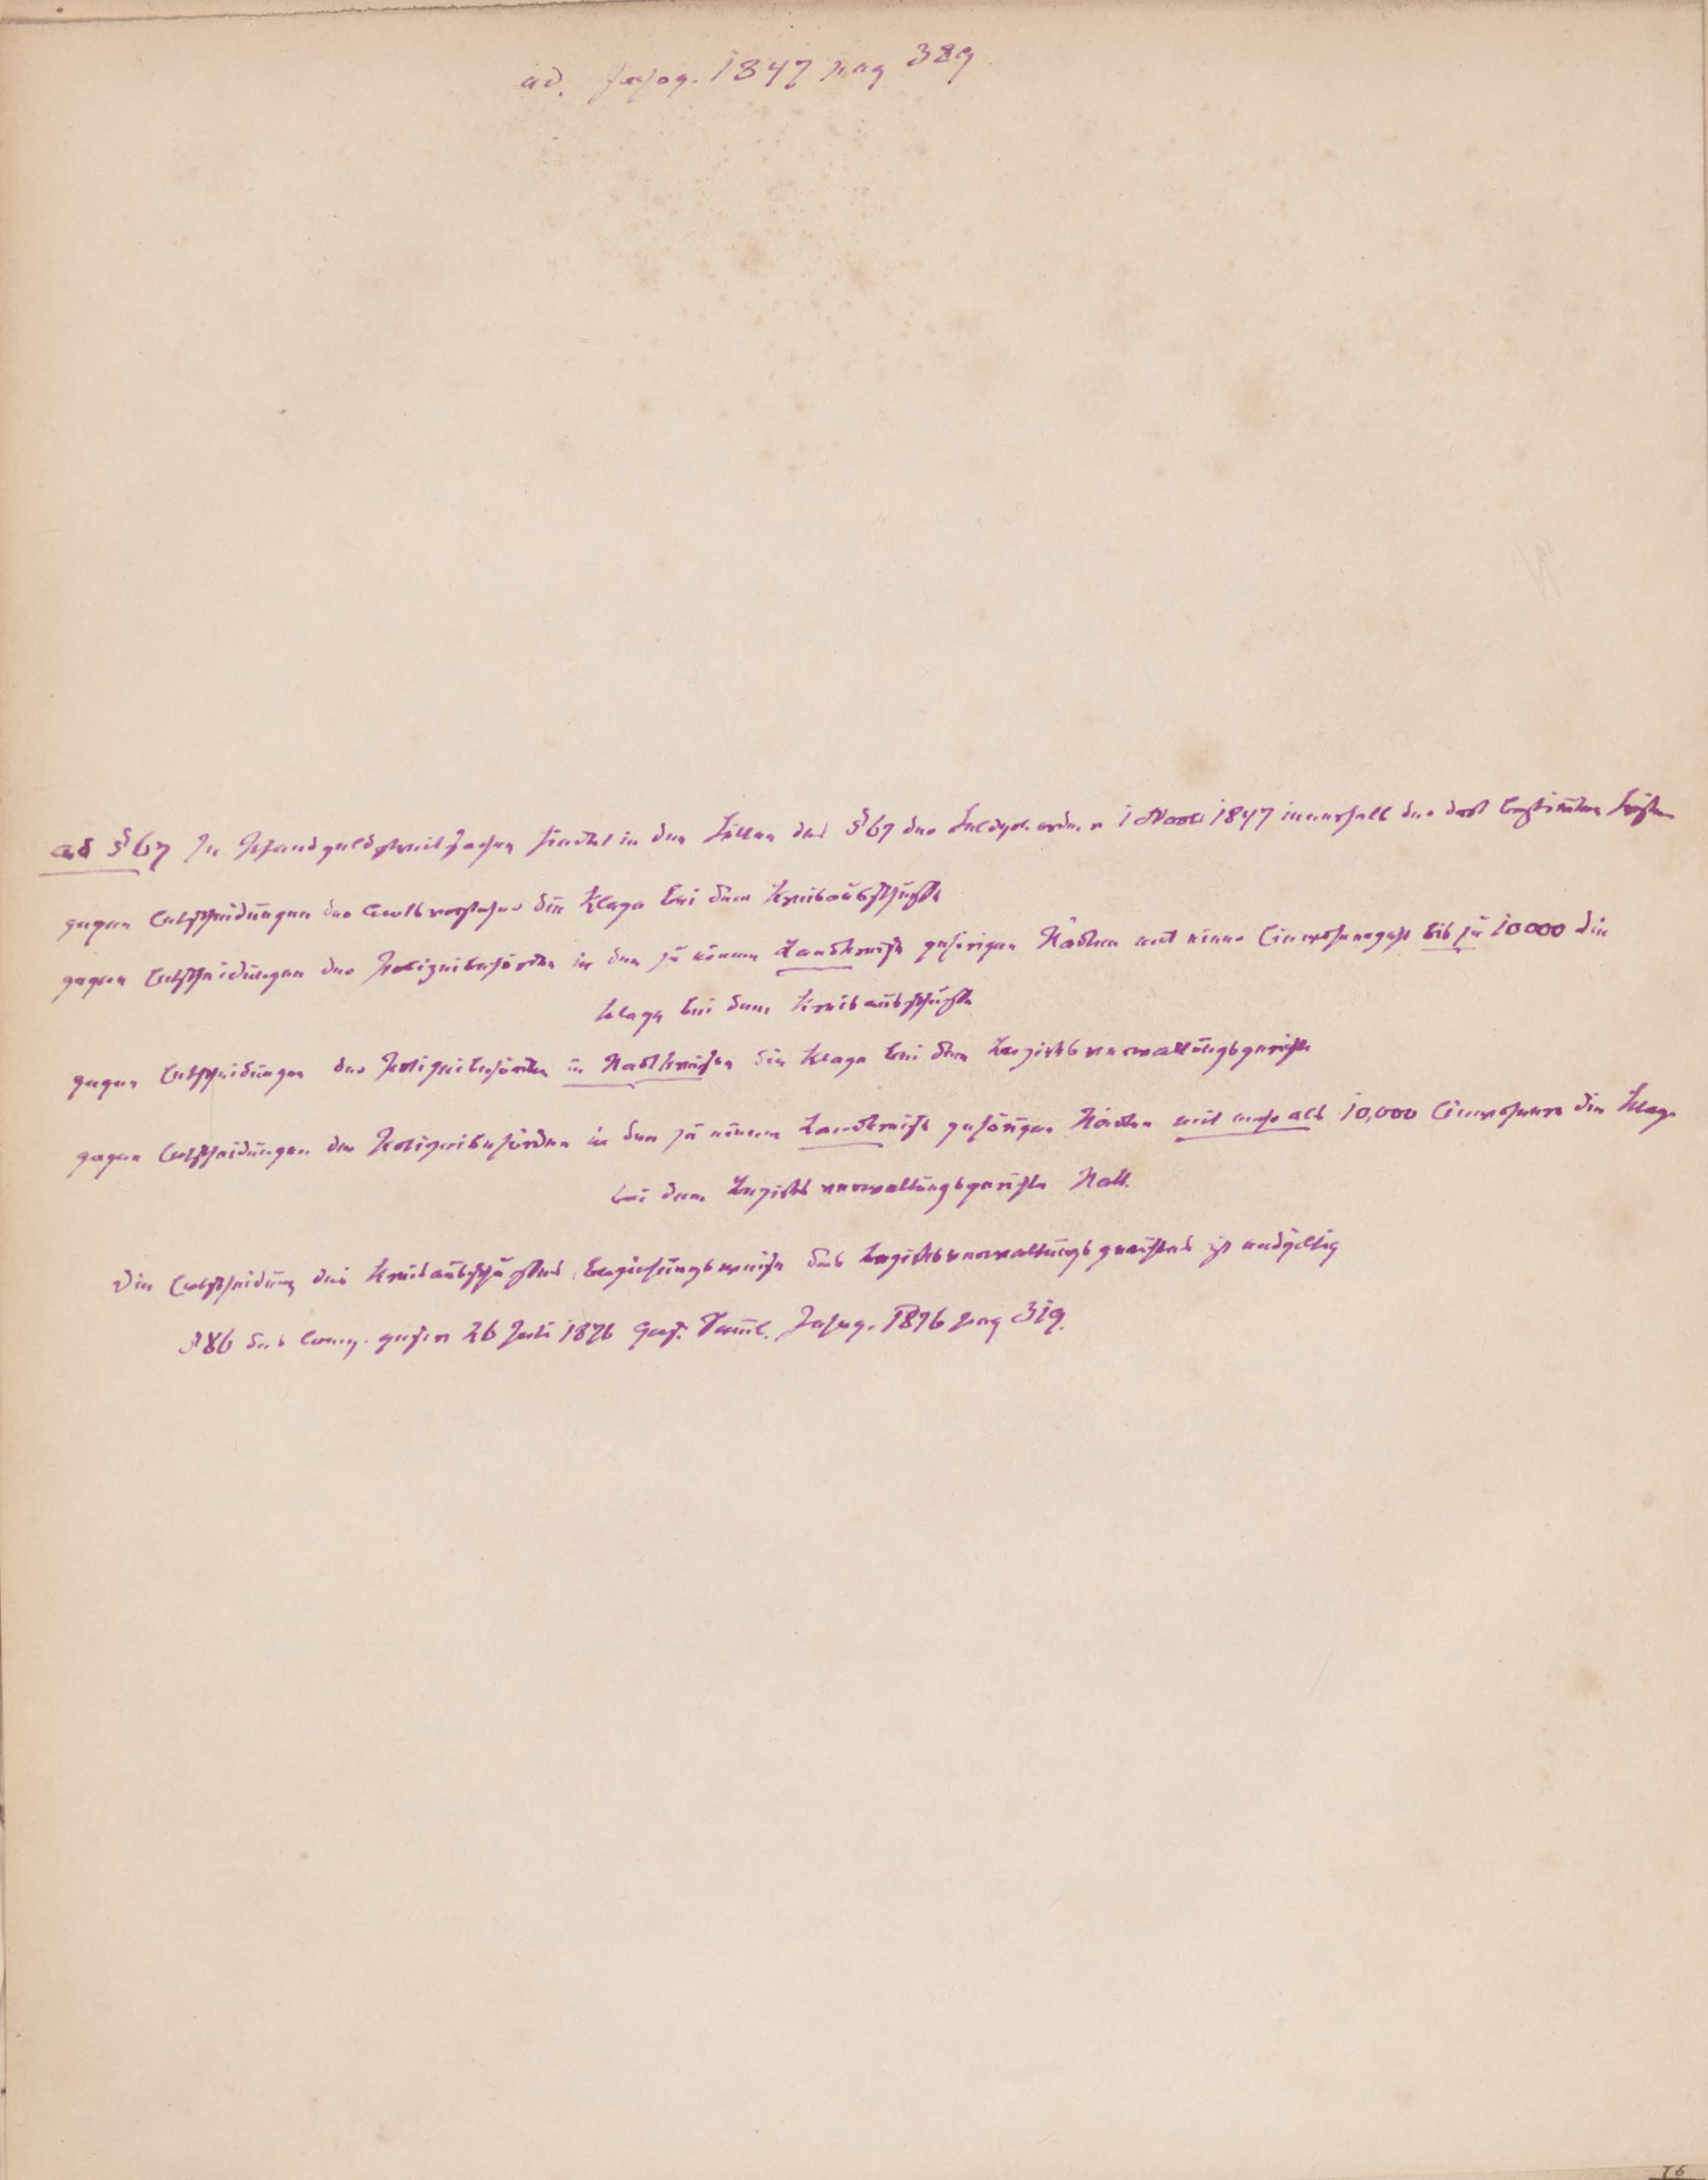 ad. Jahrg. 1847 pag 389
ad § 67 In Pfandgeldstreitsachen findet in den Fällen des § 67 der Feldpol. ordn. v 1 Novbr 1847 innerhalb der dort bestimten Fristen
gegen Entscheidungen des Amtsvorstehers die Klage bei dem Kreisausschusse
gegen Entscheidungen der Polizeibehörden in den zu einem Landkreise gehörigen Städten mit einer Einwohnerzahl bis zu 10000 die
Klage bei dem Kreisausschusse
gegen Entscheidungen der Polizeibehörden in Stadtkreisen die Klage bei dem Bezirksverwaltungsgerichte
gegen Entscheidungen der Polizeibehörden in den zu einem Landkreise gehörigen Städten mit mehr als 10,000 Einwohnern die Klage
bei dem Bezirksverwaltungsgerichte statt.
Die Entscheidung des Kreisausschusses beziehungsweise des Bezirksverwaltungsgerichtes ist endgültig
§ 86 des Comp. gesetzes 26 Juli 1876 Ges. Saml. Jahrg. 1876 pag 319.
76